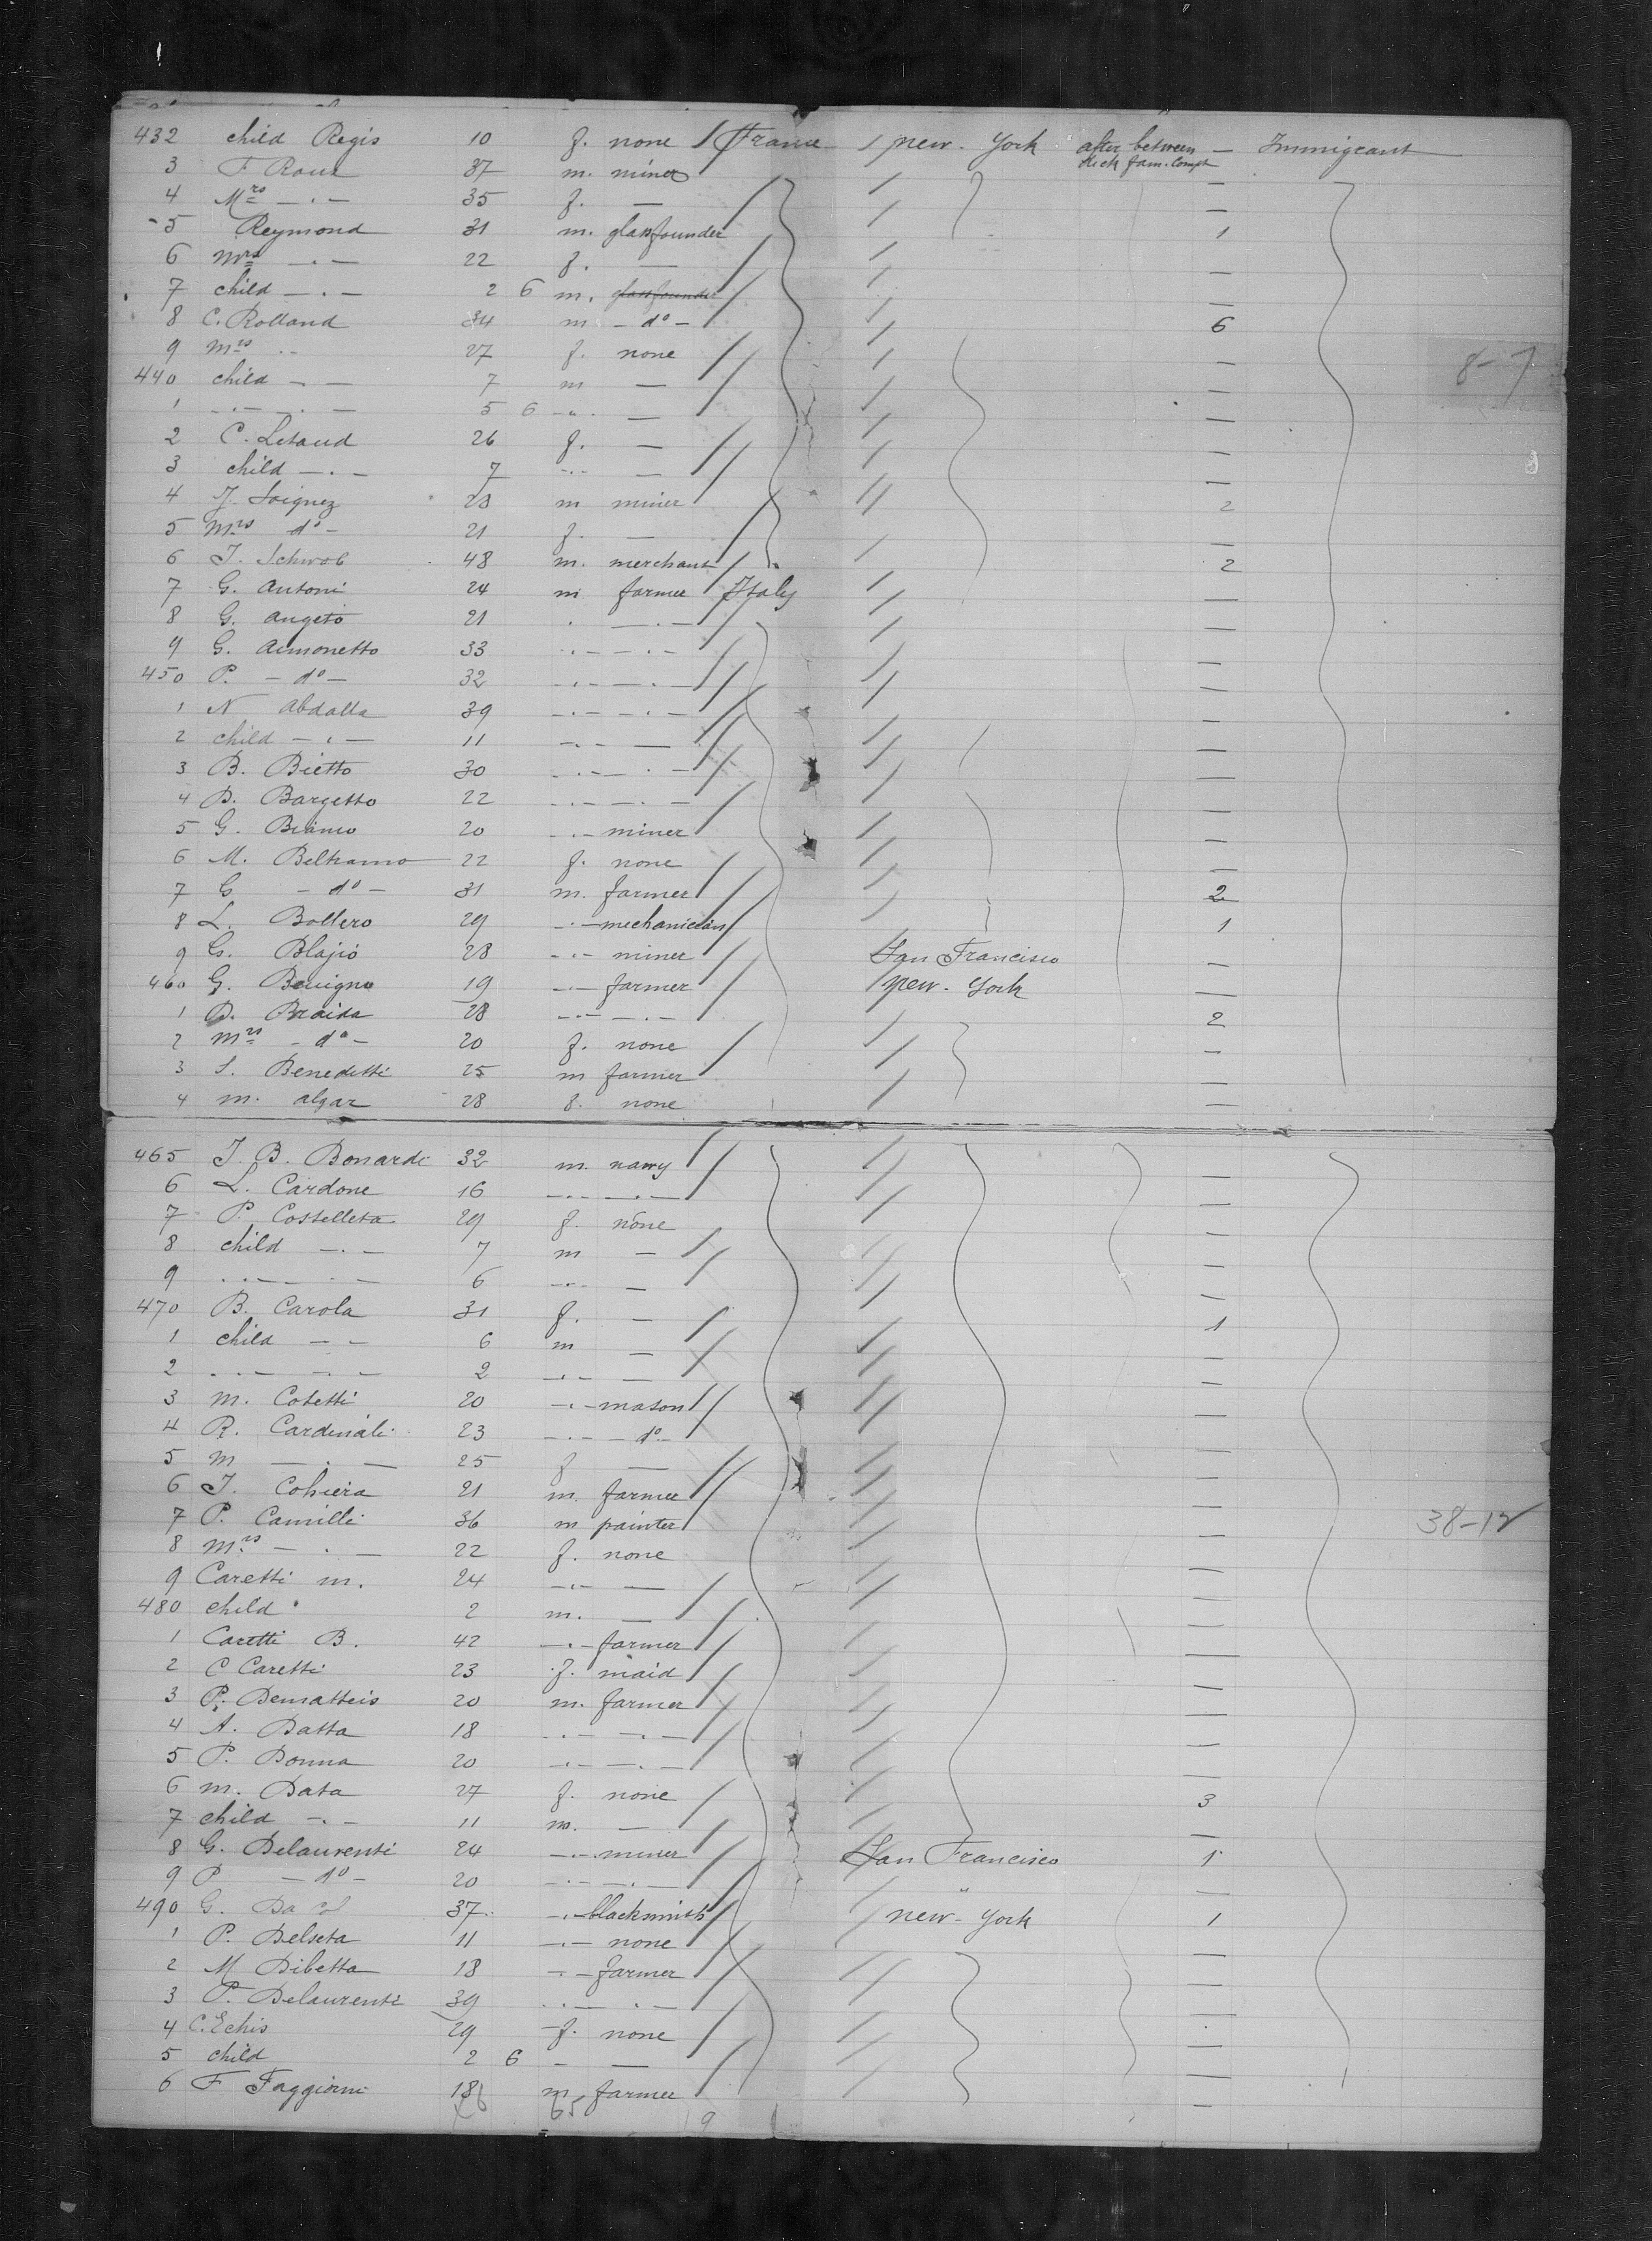 432 child Regis 10 f. none / France / new-york after between deck fam. compt — Immigrant
3 F Roux 37 m. miner —
4 Mrs —.— 35 f. — —
5 Reymond 31 m. glassfounder 1
6 mrs —.— 22 f. — —
7 child —.— 2 6 m. glassfounder —
8 C. Rolland 34 m — do — 6
9 mrs .. 27 f. none —
8-7
440 child — — 7 m — —
1 —.— . — 5 6 —.. — —
2 C. Letaud 26 f. — —
3 child —.— 7 —..— — —
4 J. Soignez 28 m miner 2
5 mrs do — 21 f. — —
6 J. Schwob 48 m. merchant 2
7 G. Antoni 24 m farmer Italy —
8 G. Angeto 21 . —.— —
9 G. Aimonetto 33 .— —.— —
450 P. — do — 32 —.— —.— —
1 N Abdalla 39 —.— —.— —
2 child —.— 11 —.— — —
3 B. Bietto 30 —.— —.— —
4 D. Bargetto 22 —.— —.— —
5 G. Bianco 20 —.— miner —
6 M. Beltramo 22 f. none —
7 G — do — 31 m. farmer 2
8 L. Bollero 29 —.— mechanician 1
9 G. Blajio 28 —.— miner San Francisco —
460 G. Benigno 19 —.— farmer new-york —
1 D. Braida 28 —.— —.— 2
2 mrs — do — 20 f. none —
3 S. Benedetti 25 m farmer —
4 m. algar 28 f. none —
465 J. B. Bonardi 32 m. navvy —
6 L. Cardone 16 —.— —.— —
7 P. Costelleta 29 f. none —
8 child —.— 7 m — —
9 .— — . — 6 —..— — —
470 B. Carola 31 f. — 1
1 child — — 6 m — —
2 .— — — 2 —.— — —
3 m. Cotetti 20 —.— mason —
4 R. Cardinali 23 —.— — do — —
5 m —.— 25 f — —
6 J. Cohiera 21 m. farmer —
7 P. Camilli 36 m painter —
38-12
8 mrs —.— 22 f. none —
9 Caretti m. 24 —.— — —
480 child " 2 m. — —
1 Caretti B. 42 —.— farmer —
2 C Caretti 23 f. maid —
3 P. Dematteis 20 m. farmer —
4 A. Datta 18 —.— —.— —
5 P. Donna 20 —.— —.— —
6 m. Data 27 f. none 3
7 child —.— 11 m. — —
8 G. Delaurenti 24 —.— miner San Francisco 1
9 P — do — 20 —.— —.— " —
490 G. Da Col 37 —.— blacksmith new-york 1
1 P. Delseta 11 —.— none —
2 M Dibetta 18 —.— farmer —
3 P. Delaurenti 39 —.— .— —
4 C. Echis 29 f. none —
5 child 2 6 — — —
6 F Faggioni 18 m farmer —
65 9